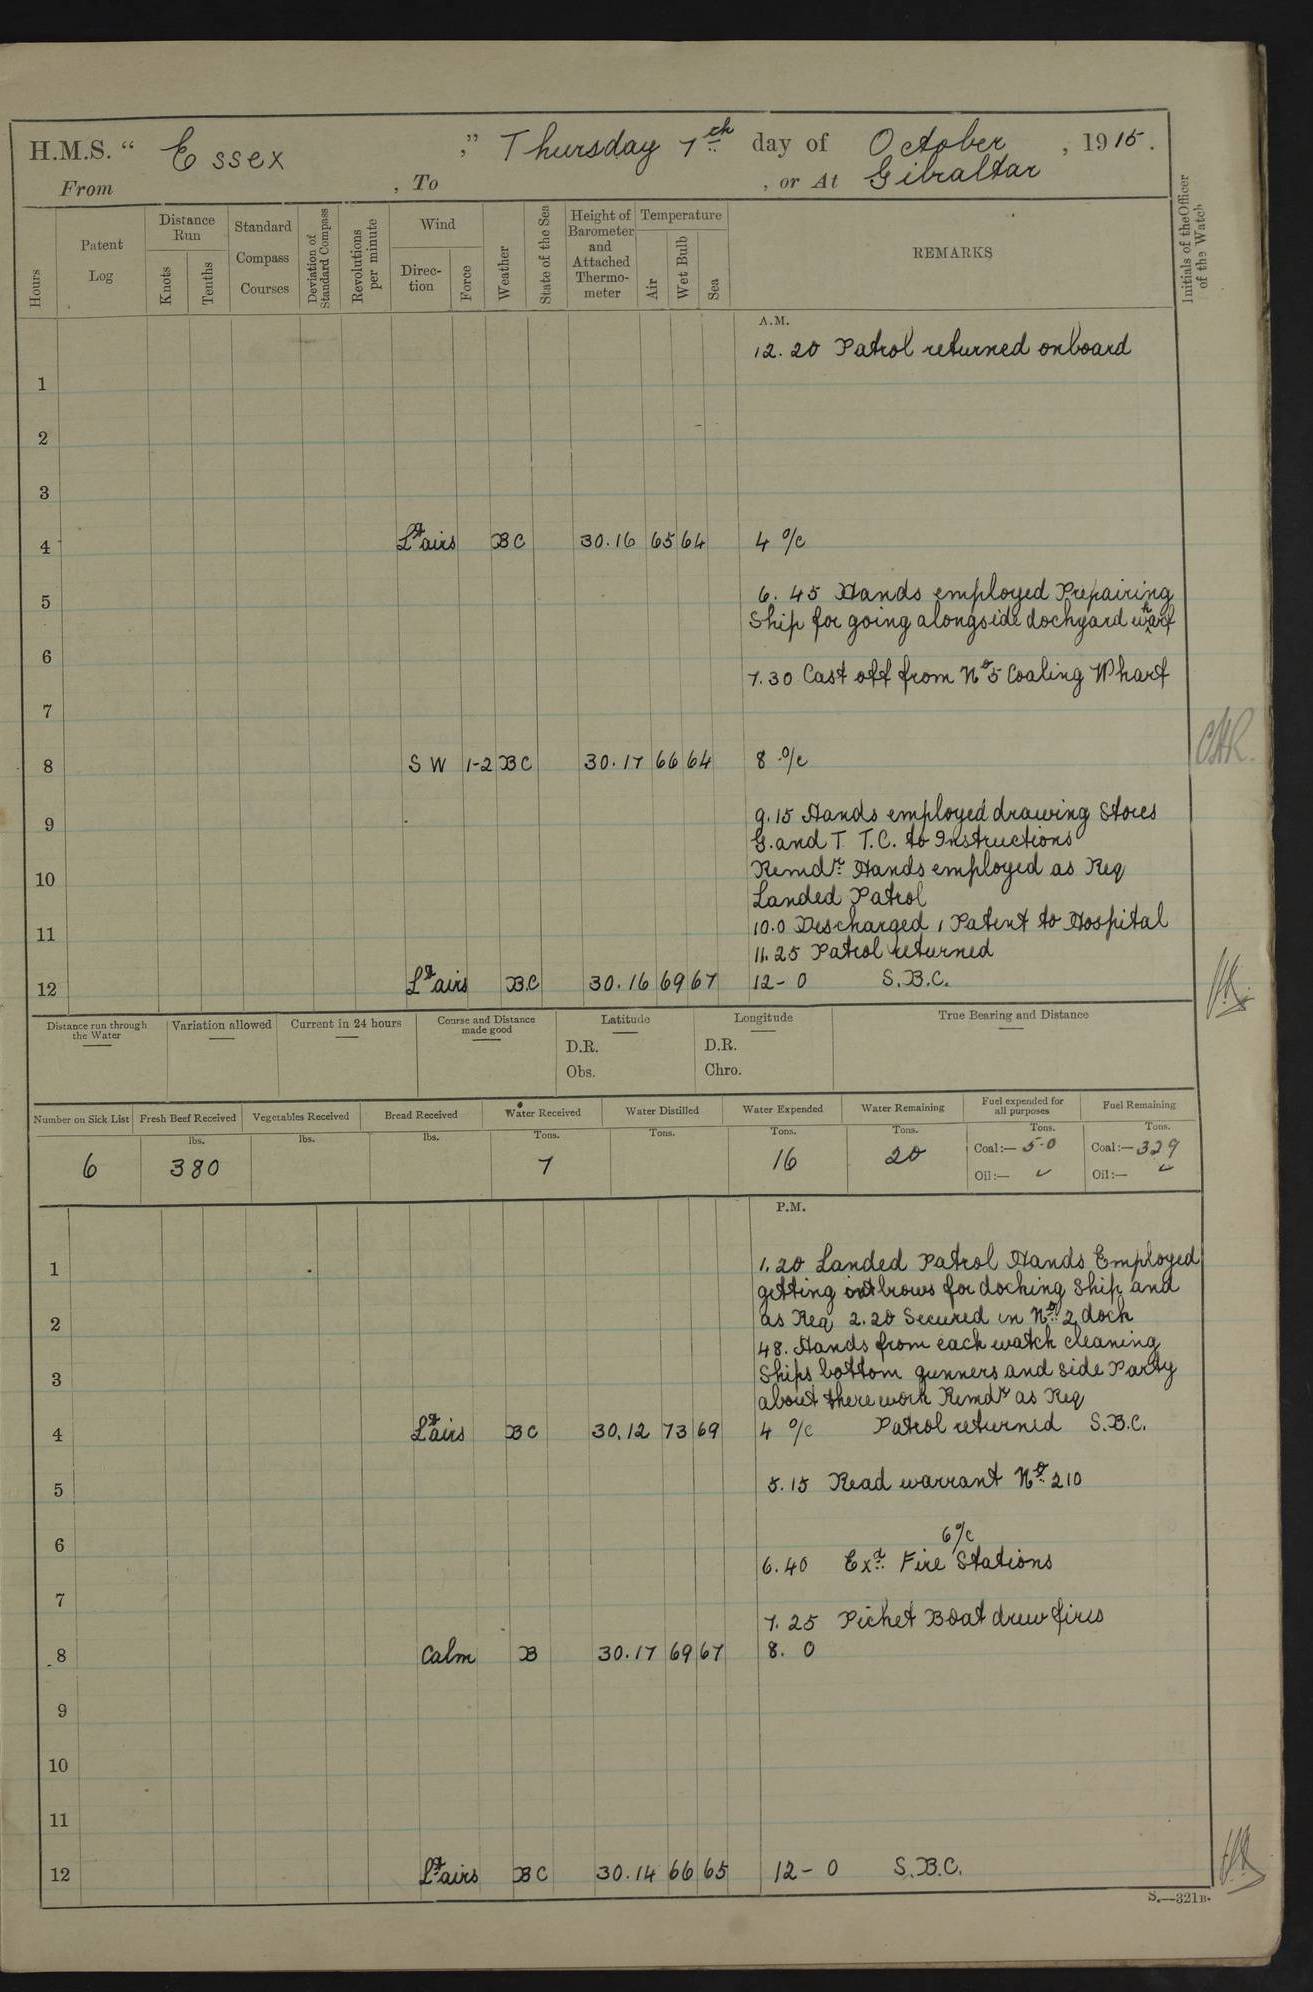 H.M.S. “ Essex ,” Thursday 7th day of October , 1915.
From , To , or At Gibraltar
Hours
Patent Log
Distance Run
Knots
Tenths
Standard Compass Courses
Deviation of Standard Compass
Revolutions per minute
Wind
Direction
Force
Weather
State of the Sea
Height of Barometer and Attached Thermo-meter
Temperature
Air
Wet Bulb
Sea
REMARKS
Initials of the Officer of the Watch
A.M.
12.20 Patrol returned onboard
1
2
3
4 Lt airs BC 30.16 65 64 4 o/c
5 6.45 Hands employed Prepairing
Ship for going alongside dockyard wharf
6
7.30 Cast off from No 5 Coaling Wharf
7
8 SW 1-2 BC 30.17 66 64 8 o/c
9 9.15 Hands employed drawing Stores
G. and T T.C. to Instructions
10 Remdr Hands employed as Req
Landed Patrol
11 10.0 Discharged 1 Patent to Hospital
11.25 Patrol returned
12 Lt airs B.C 30.16 69 67 12-0 S.B.C.
Distance run through the Water
Variation allowed
Current in 24 hours
Course and Distance made good
Latitude
D.R.
Obs.
Longitude
D.R.
Chro.
True Bearing and Distance
Number on Sick List
Fresh Beef Received
Vegetables Received
Bread Received
Water Received
Water Distilled
Water Expended
Water Remaining
Fuel expended for all purposes
Fuel Remaining
lbs. lbs. lbs. Tons. Tons. Tons. Tons. Tons. Tons.
6 380 7 16 20 Coal:— 5.0 Coal:— 329
Oil:— ✓ Oil:— ✓
P.M.
1 1.20 Landed Patrol Hands Employed
getting out brows for docking Ship and
2 as Req 2.20 Secured in No 2 dock
48. Hands from each watch cleaning
3 Ships bottom gunners and side Party
about there work Remdr as Req
4 Lt airs BC 30.12 73 69 4 o/c Patrol returned S.B.C.
5 5.15 Read warrant No 210
6 6 o/c
6.40 Exd Fire Stations
7
7.25 Picket Boat drew fires
8 Calm B 30.17 69 67 8. 0
9
10
11
12 Lt airs BC 30.14 66 65 12-0 S.B.C.
S.—321B.